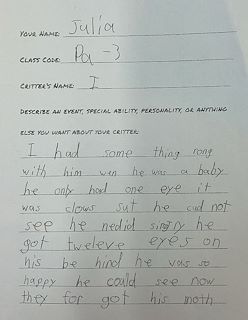 YOUR NAME: Julia
CLASS CODE: Pa-3
CRITTER'S NAME: I
DESCRIBE AN EVENT, SPECIAL ABILITY, PERSONALITY, OR ANYTHING
ELSE YOU WANT ABOUT YOUR CRITTER:
I had some thing rong
with him wen he was a baby
he only had one eye it
was clows sut he cud not
see he nedid singry he
got tweleve eyes on
his be hind he was so
happy he could see now
they for got his moth